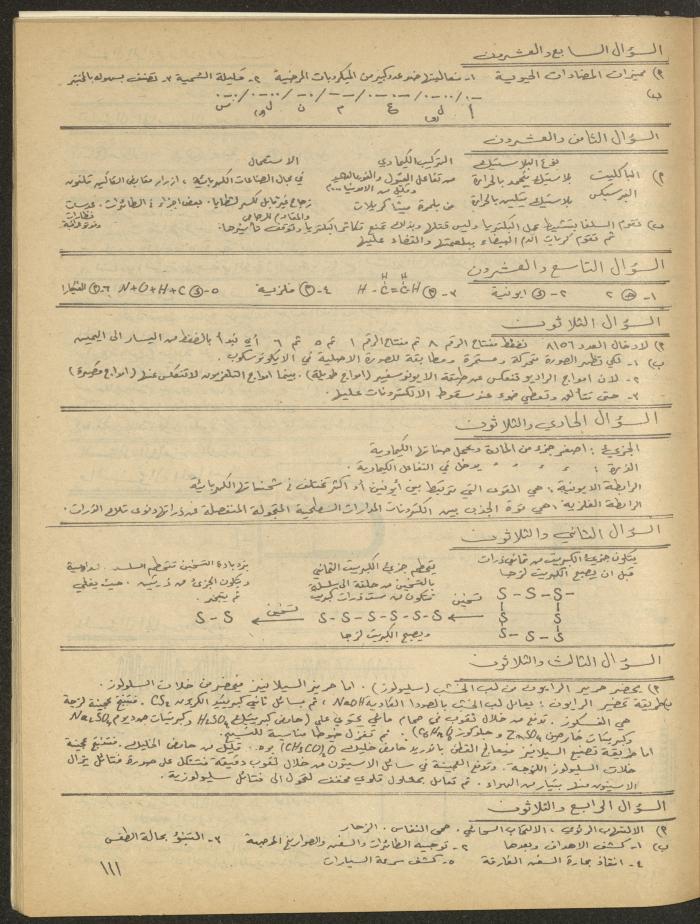 السؤال السابع والعشرون
٢) مميزات المضادات الحيوية ١- فعاليتها ضد عدد كبير من الميكروبات المرضية ٢- قليلة السمية ٣- تصنف بسهولة بالمختبر
ب)
السؤال الثامن والعشرون
نوع البلاستيك التركيب الكيماوي الاستعمال
٢) الباكليت بلاستيك يتجمد بالحرارة من تفاعل الفينول والفورمالدهيد في مجال الصناعات الكهربائية ، ازرار مقابض
البرسبكس بلاستيك يتلين بالحرارة من بلمرة ميثاكريلات زجاج غير قابل للكسر
ب) تقوم السلفا بتثبيط عمل البكتريا وليس قتلها وبذلك تمنع تكاثر البكتريا وتوقف تأثيرها.
ثم تقوم كريات الدم البيضاء ببلعمتها والقضاء عليها
السؤال التاسع والعشرون
٢ - ايونية ٣- H - C = C - H ٤- فلزية ٥- N + O + H + C ٦-
السؤال الثلاثون
٢) لادخال العدد ٨١٥٦ نضغط مفتاح الرقم ٨ ثم مفتاح الرقم ١ ثم ٥ ثم ٦ أي نبدأ بالضغط من اليسار الى اليمين
ب) ١- لكي تظهر الصورة متحركة ومستمرة ومطابقة للصورة الاصلية في الايكونوسكوب.
٢- لان امواج الراديو تنعكس عن طبقة الايونوسفير (امواج طويلة). بينما امواج التلفزيون لا تنعكس عنها (امواج قصيرة)
٣- حتى تتألق وتعطي ضوء عند سقوط الالكترونات عليها.
السؤال الحادي والثلاثون
الجزيء : اصغر جزء من المادة ويحمل صفاتها الكيماوية
الذرة : " " " " يدخل في التفاعل الكيماوية .
الرابطة الايونية : هي القوى التي تربط بين أيونين أو اكثر تختلف في شحناتها الكهربائية
الرابطة الفلزية : هي قوة الجذب بين الكترونات المدارات السطحية المتجولة المنفصلة عن ذراتها ونوى تلك الذرات.
السؤال الثاني والثلاثون
يتكون جزيء الكبريت من ثماني ذرات يتحطم جزيء الكبريت الثماني بزيادة التسخين تتحطم السلسلة
قبل ان يصبح الكبريت لزجا بالتسخين من حلقة الى سلسلة ويتكون الجزيء من ذرتين . حيث يغلي
تتكون من ست ذرات كبريت ثم يتبخر .
S - S - S - تسخين S - S - S - S - S - S تسخين S - S
S S
S - S - S
ويصبح الكبريت لزجا
السؤال الثالث والثلاثون
٢) يحضر حرير الرايون من لب الخشب (سليولوز) . اما حرير السيلانيز فيحضر من خلات السلولوز .
طريقة تحضير الرايون : يعامل لب الخشب بالصودا الكاوية NaOH ، ثم بسائل ثاني كبريتيد الكربون CS₂ . فتنتج عجينة لزجة
هي الفسكوز . تدفع من خلال ثقوب في حمام مائي يحتوي على (حامض كبريتيك H₂SO₄ وكبريتات صوديوم Na₂SO₄
وكبريتات خارصين ZnSO₄ وجلوكوز) . ثم تغزل خيوطا مناسبة للنسيج.
اما طريقة تصنيع السيلانيز فيعالج القطن بأندريد حامض خليك (CH₃CO)₂O مع قليل من حامض الخليك . فتنتج عجينة
خلات السليولوز اللزجة . وتدفع العجينة في سائل الاسيتون من خلال ثقوب دقيقة فتتشكل على صورة فتائل يزال
الاسيتون منها بتيار من الهواء . ثم تعامل بمحلول قلوي مخفف لتحول الى فتائل سليولوزية .
السؤال الرابع والثلاثون
٢) الالتهاب الرئوي ، الالتهاب السحائي . حمى النفاس . الزحار
ب) ١- كشف الاهداف وبعدها ٢- توجيه الطائرات والسفن والصواريخ الموجهة ٣- التنبؤ بحالة الطقس
٤- انقاذ بحارة السفن الغارقة ٥- كشف سرعة السيارات
١١١